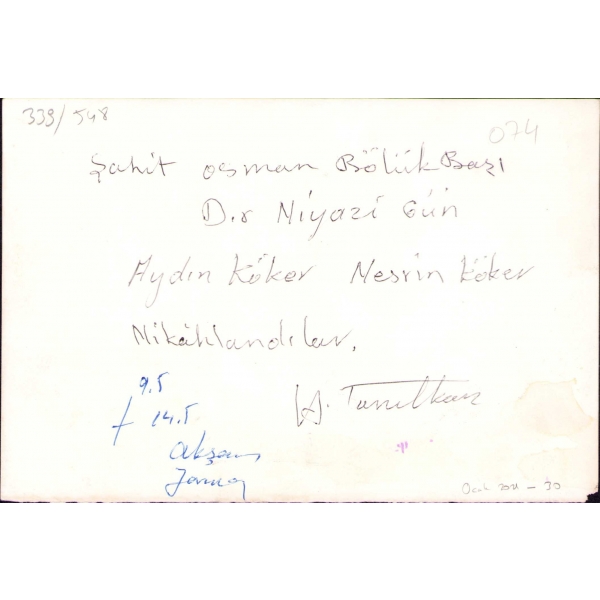 339/548
074
Şahit osman Bölük Başı
D.r Niyazi Gün
Aydın Köker Nesrin Köker
Nikâhlandılar.
9.5
14.5
akşam
H.
30